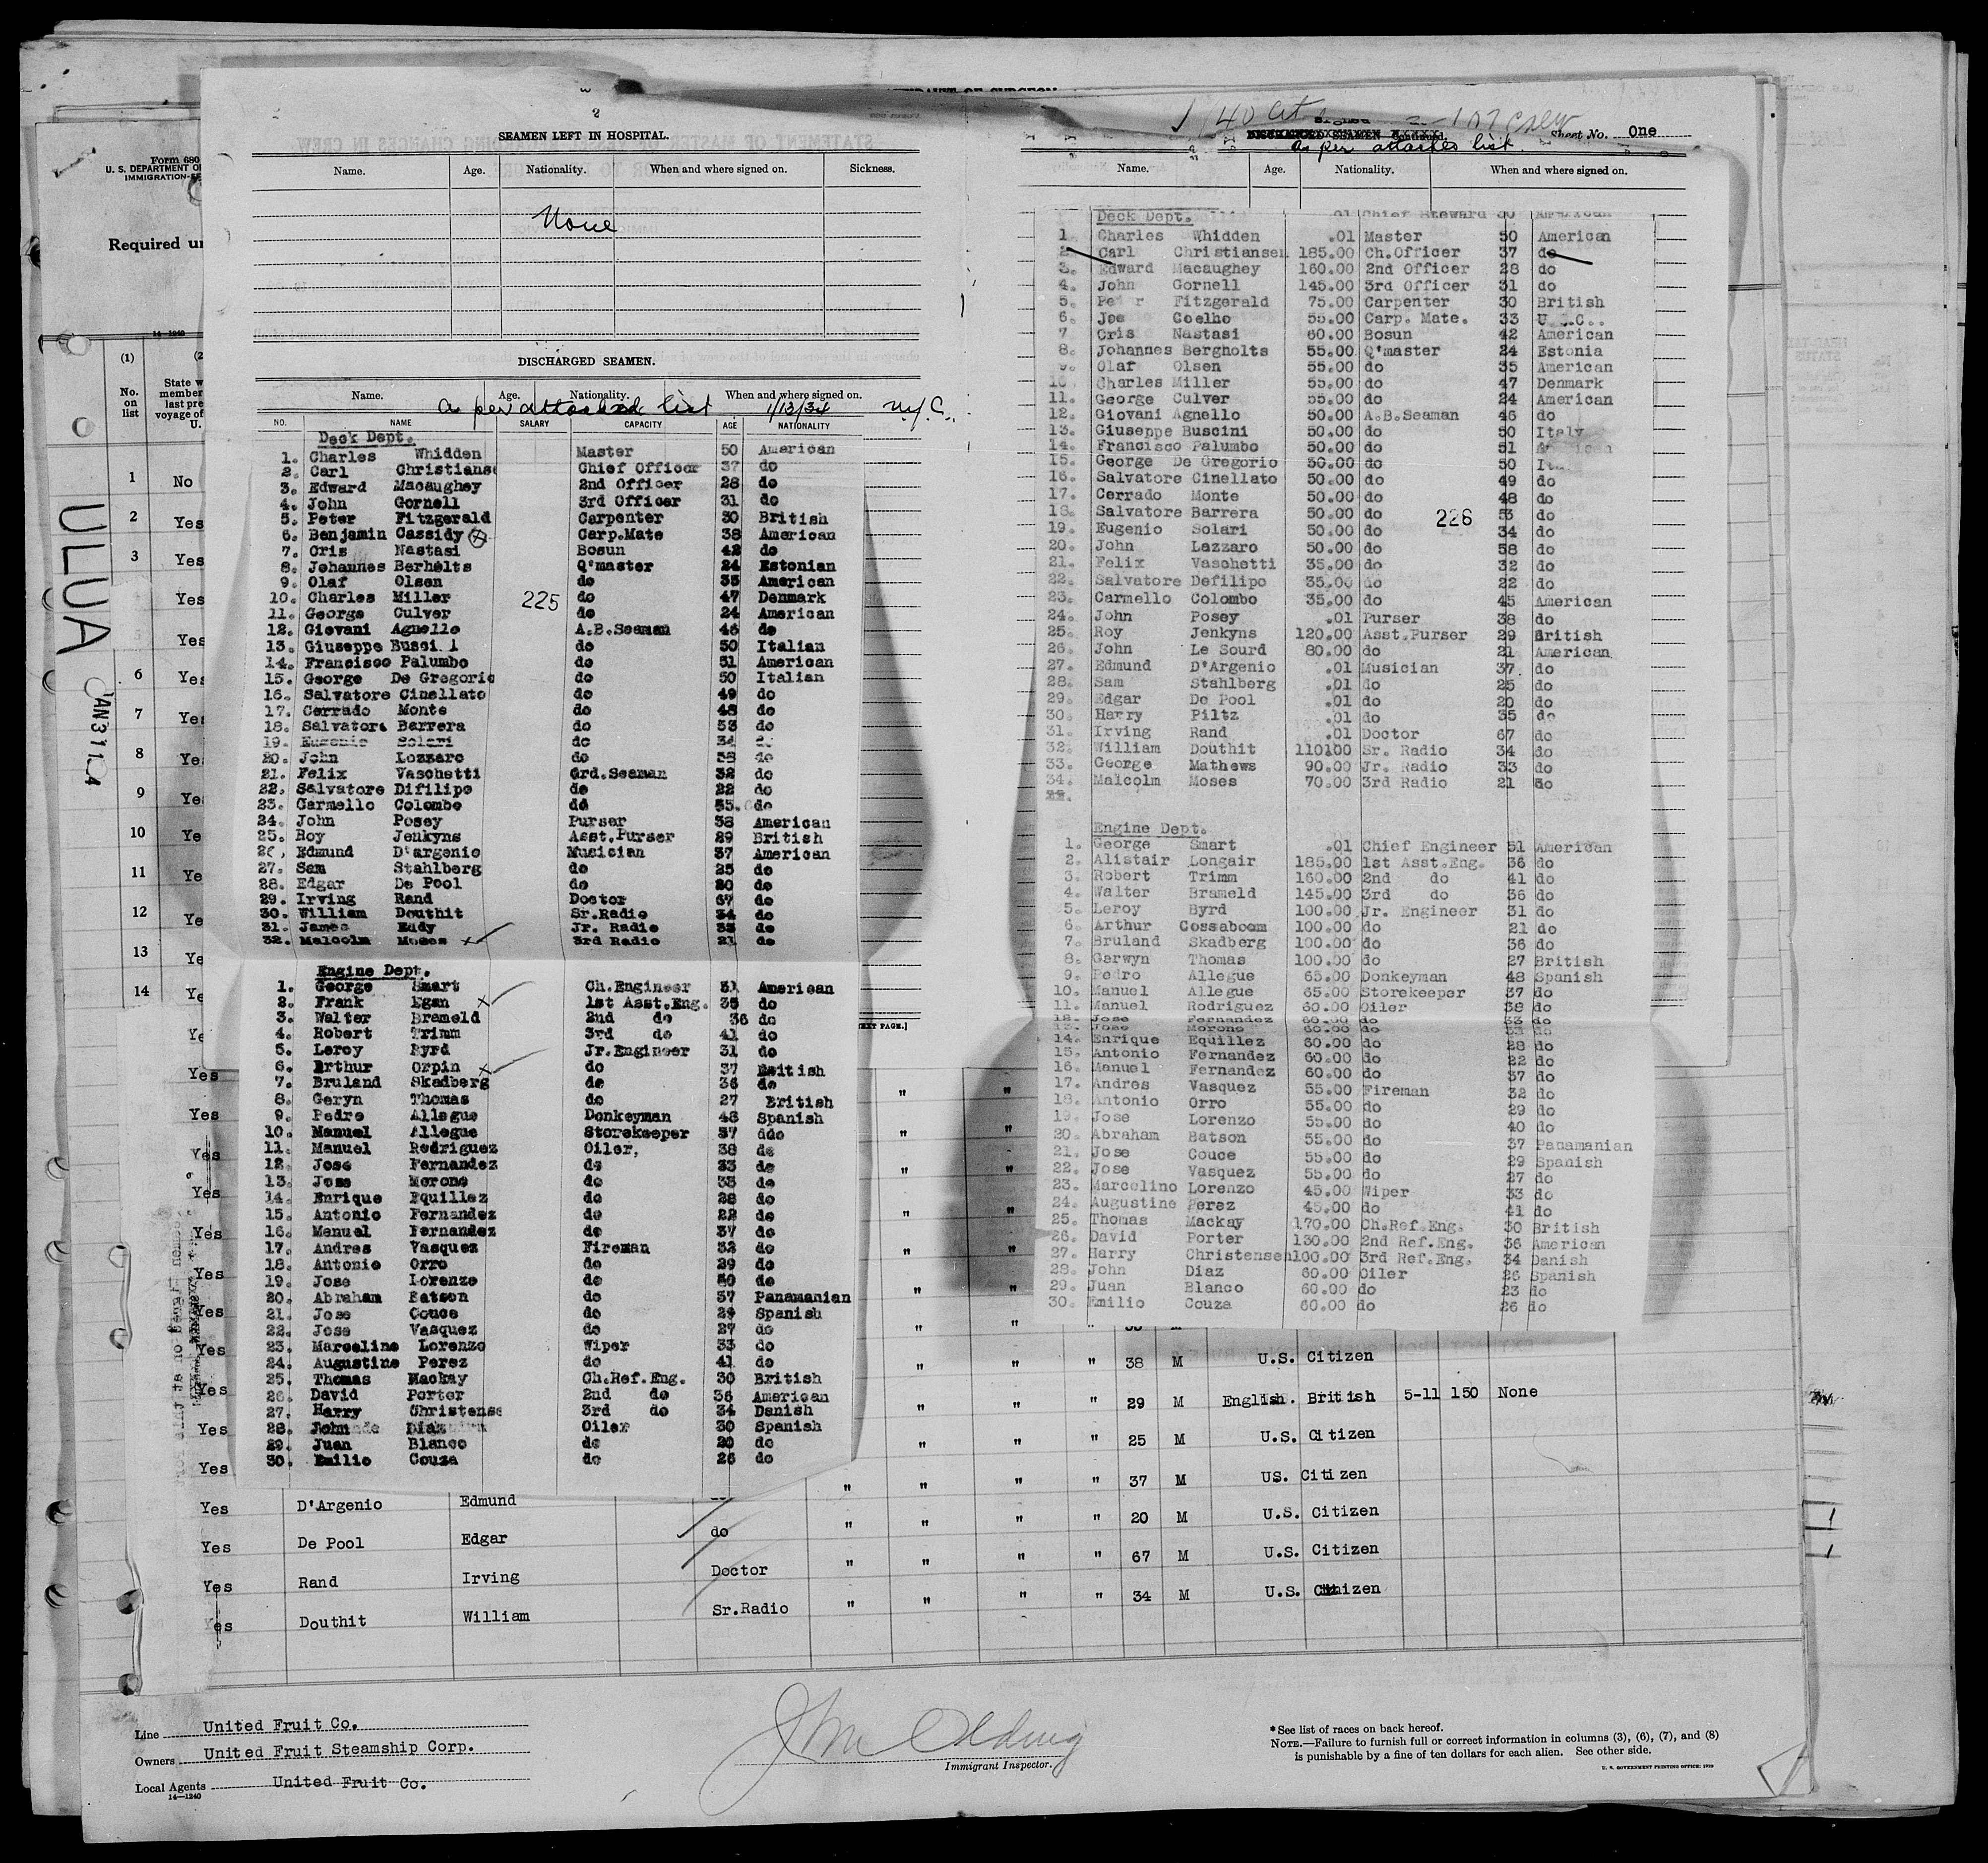 2
SEAMEN LEFT IN HOSPITAL.
Name. Age. Nationality. When and where signed on. Sickness.
None
DISCHARGED SEAMEN.
Name. Age. Nationality. When and where signed on.
as per attached list 1/13/34 N.Y.C.
NO. NAME SALARY CAPACITY AGE NATIONALITY
Deck Dept.
1. Charles Whidden Master 50 American
2. Carl Christianse Chief Officer 37 do
3. Edward Macaughey 2nd Officer 28 do
4. John Gornell 3rd Officer 31 do
5. Peter Fitzgerald Carpenter 30 British
6. Benjamin Cassidy Carp.Mate 38 American
7. Cris Nastasi Bosun 42 do
8. Johannes Berhelts Q'master 24 Estonian
9. Olaf Olsen do 35 American
10. Charles Miller 225 do 47 Denmark
11. George Culver do 24 American
12. Giovani Agnello A.B.Seaman 46 do
13. Giuseppe do 50 Italian
14. Francisco Palumbo do 51 American
15. George De Gregorio do 50 Italian
16. Salvatore Cinellato do 49 do
17. Cerrado Monte do 48 do
18. Salvatore Barrera do 53 do
19. Eugenio Solari do 34 do
20. John Lozzaro do 58 do
21. Felix Vaschetti Ord.Seaman 32 do
22. Salvatore Difilipo do 22 do
23. Carmello Colombo do do
24. John Posey Purser 38 American
25. Roy Jenkyns Asst.Purser 29 British
26. Edmund D'argenio Musician 37 American
27. Sam Stahlberg do 25 do
28. Edgar De Pool do 20 do
29. Irving Rand Doctor 67 do
30. William Douthit Sr.Radio 34 do
31. James Eddy Jr. Radio do
32. Malcolm Moses x 3rd Radio 21 do
Engine Dept.
1. George Smart Ch.Engineer 51 American
2. Frank Egan x 1st Asst.Eng. 35 do
3. Walter Brameld 2nd do 36 do
4. Robert Trimm 3rd do 41 do
5. Leroy Byrd Jr.Engineer 31 do
6. Arthur Orpin x do 37 British
7. Bruland Skadberg do 36 do
8. Geryn Thomas do 27 British
9. Pedro Allegue Donkeyman 48 Spanish
10. Manuel Allegue Storekeeper 37 ddo
11. Manuel Rodriguez Oiler, 38 do
12. Jose Fernandez do 33 do
13. Jose Morono do 33 do
14. Enrique Equillez do 28 do
15. Antonio Fernandez do 22 do
16. Manuel Fernandez do 37 do
17. Andres Vasquez Fireman 32 do
18. Antonio Orro do 29 do
19. Jose Lorenzo do do
20. Abraham Batson do 37 Panamanian
21. Jose Couce do 29 Spanish
22. Jose Vasquez do 27 do
23. Marceline Lorenzo Wiper 33 do
24. Augustine Perez do 41 do
25. Thomas Mackay Ch.Ref.Eng. 30 British
26. David Porter 2nd do 36 American
27. Harry Christense 3rd do 34 Danish
28. John Diaz Oiler 30 Spanish
29. Juan Blanco do 20 do
30. Emilio Couza do 26 do
1 40 Crt 107 crew
SEAMEN Continued. Sheet No. One
as per attached list.
Name. Age. Nationality. When and where signed on.
Deck Dept. .01 Chief Steward 50 American
1 Charles Whidden .01 Master 50 American
2. Carl Christiansen 185.00 Ch.Officer 37 do
3. Edward Macaughey 160.00 2nd Officer 28 do
4. John Gornell 145.00 3rd Officer 31 do
5. Pe r Fitzgerald 75.00 Carpenter 30 British
6. Joe Coelho 55.00 Carp. Mate. 33 U. .C..
7 Cris Nastasi 60.00 Bosun 42 American
8. Johannes Bergholts 55.00 Q'master 24 Estonia
9. Olaf Olsen 55.00 do 35 American
10. Charles Miller 55.00 do 47 Denmark
11. George Culver 55.00 do 24 American
12. Giovani Agnello 50.00 A.B.Seaman 46 do
13. Giuseppe Buscini 50.00 do 50 Italy
14. Francisco Palumbo 50.00 do 51 American
15. George De Gregorio 50.00 do 50 It
16. Salvatore Cinellato 50.00 do 49 do
17. Cerrado Monte 50.00 do 48 do
18. Salvatore Barrera 50.00 do 226 53 do
19. Eugenio Solari 50.00 do 34 do
20. John Lazzaro 50.00 do 58 do
21. Felix Vaschetti 35.00 do 32 do
22. Salvatore Defilipo 35.00 do 22 do
23. Carmello Colombo 35.00 do 45 American
24. John Posey .01 Purser 38 do
25. Roy Jenkyns 120.00 Asst.Purser 29 British
26. John Le Sourd 80.00 do 21 American
27. Edmund D'Argenio .01 Musician 37 do
28. Sam Stahlberg .01 do 25 do
29. Edgar De Pool .01 do 20 do
30. Harry Piltz .01 do 35 do
31. Irving Rand .01 Doctor 67 do
32. William Douthit 110100 Sr. Radio 34 do
33. George Mathews 90.00 Jr. Radio 33 do
34. Malcolm Moses 70.00 3rd Radio 21 do
Engine Dept.
1. George Smart .01 Chief Engineer 51 American
2. Alistair Longair 185.00 1st Asst.Eng. 36 do
3. Robert Trimm 160.00 2nd do 41 do
4. Walter Brameld 145.00 3rd do 36 do
5. Leroy Byrd 100.00 Jr. Engineer 31 do
6. Arthur Cossaboom 100.00 do 21 do
7. Bruland Skadberg 100.00 do 36 do
8. Garwyn Thomas 100.00 do 27 British
9. Pedro Allegue 65.00 Donkeyman 48 Spanish
10. Manuel Allegue 65.00 Storekeeper 37 do
11. Manuel Rodriguez 60.00 Oiler 38 do
12. Jose Fernandez 60.00 do 33 do
13. Jose Morono 60.00 do 33 do
14. Enrique Equillez 60.00 do 28 do
15. Antonio Fernandez 60.00 do 22 do
16. Manuel Fernandez 60.00 do 37 do
17. Andres Vasquez 55.00 Fireman 32 do
18. Antonio Orro 55.00 do 29 do
19. Jose Lorenzo 55.00 do 40 do
20. Abraham Batson 55.00 do 37 Panamanian
21. Jose Couce 55.00 do 29 Spanish
22. Jose Vasquez 55.00 do 27 do
23. Marcelino Lorenzo 45.00 Wiper 33 do
24. Augustine Perez 45.00 do 41 do
25. Thomas Mackay 170.00 Ch.Ref.Eng. 30 British
26. David Porter 130.00 2nd Ref.Eng. 36 American
27. Harry Christensen 100.00 3rd Ref.Eng. 34 Danish
28. John Diaz 60.00 Oiler 26 Spanish
29. Juan Blanco 60.00 do 23 do
30. Emilio Couza 60.00 do 26 do
Form 680
U. S. DEPARTMENT O
IMMIGRATION
Required u
14-1240
(1) (2
No. on list
State w
member
last pre
voyage of
U.
ULUA
JAN 31
1 No
2 Yes
3 Yes
Yes
5 Yes
6 Yes
7 Yes
8 Yes
9 Yes
10 Ye
11 Ye
12 Ye
13 Ye
14 Ye
EXT PAGE.]
" " " 38 M U.S. Citizen
" " " 29 M English. British 5-11 150 None
" " " 25 M U.S. Citizen
" " " 37 M US. Citizen
Yes D'Argenio Edmund " " " " 20 M U.S. Citizen
Yes De Pool Edgar do " " " " 67 M U.S. Citizen
Yes Rand Irving Doctor " " " " 34 M U.S. Citizen
Yes Douthit William Sr.Radio " "
Line United Fruit Co.
Owners United Fruit Steamship Corp.
Local Agents United Fruit Co.
14-1240
Immigrant Inspector.
* See list of races on back hereof.
NOTE.—Failure to furnish full or correct information in columns (3), (6), (7), and (8)
is punishable by a fine of ten dollars for each alien. See other side.
U. S. GOVERNMENT PRINTING OFFICE: 1930